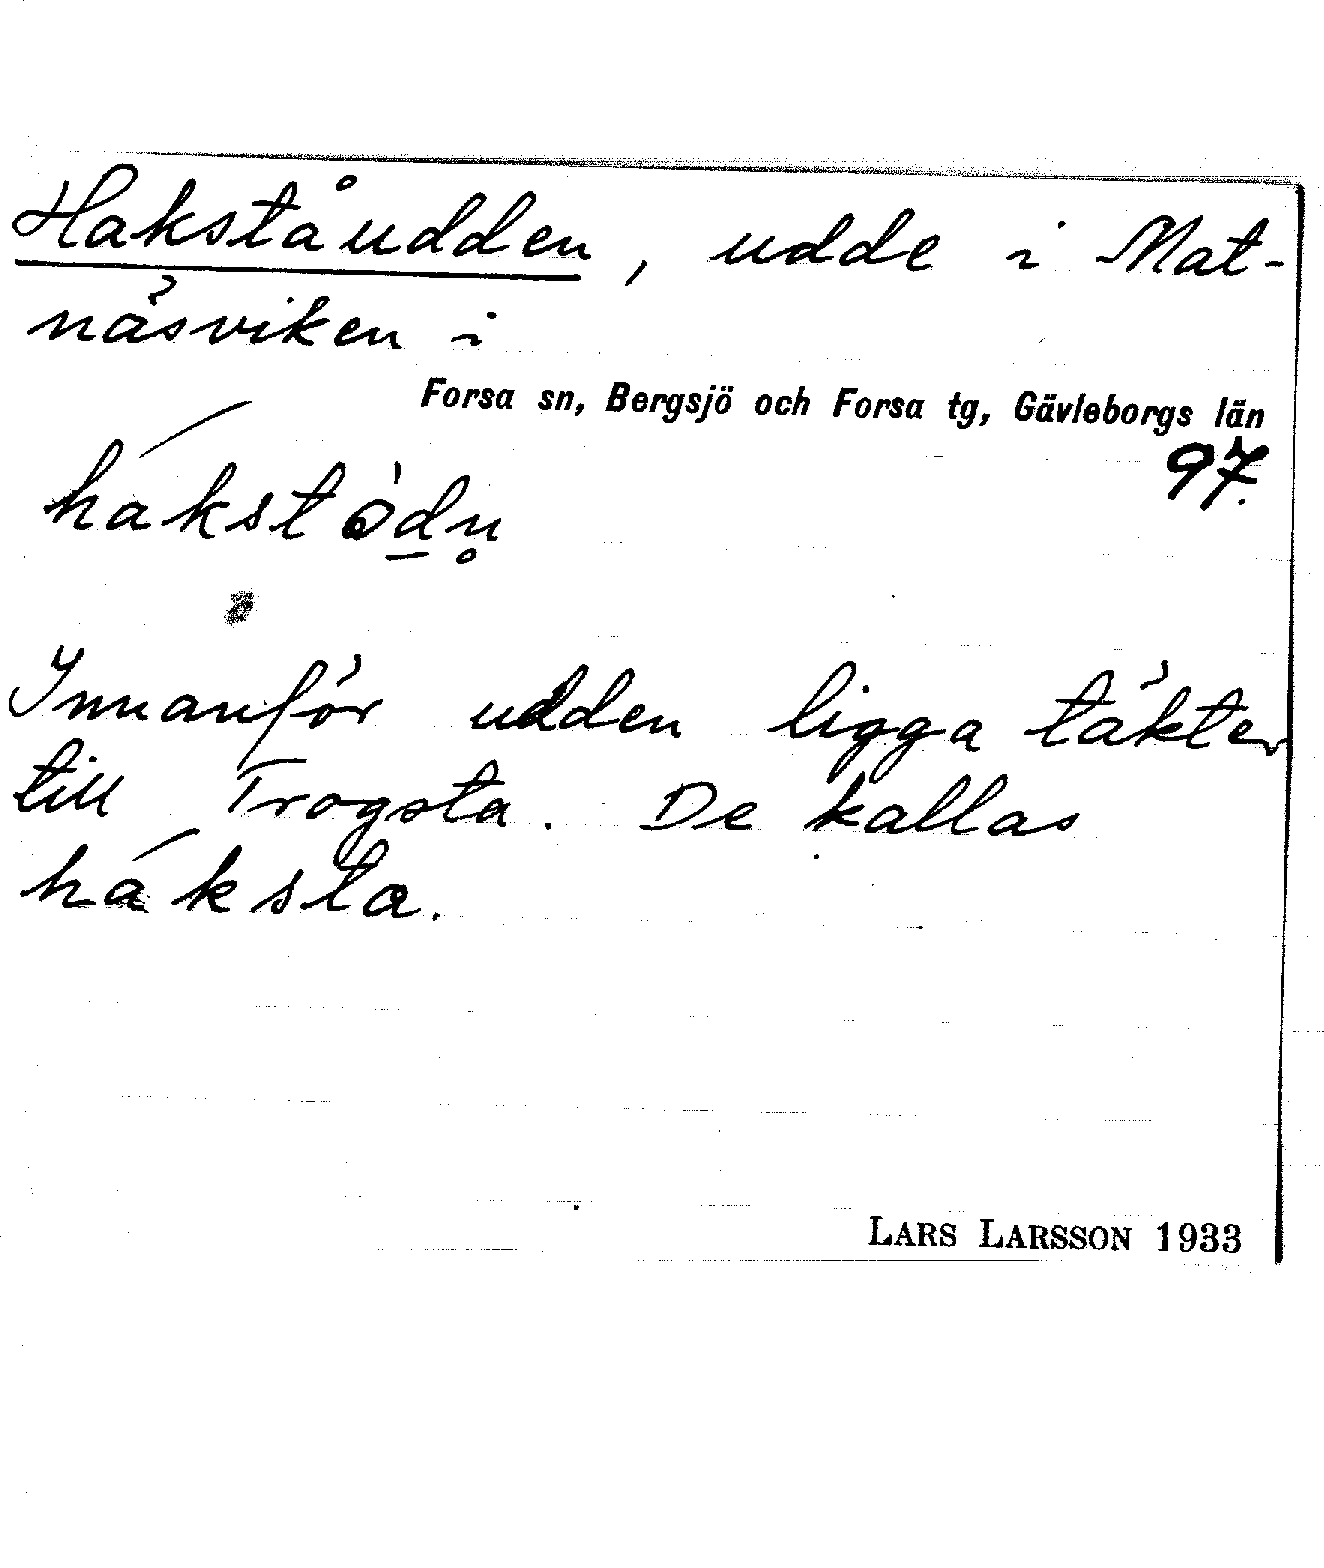 Hakståudden, udde i Mat-
näsviken i
Forsa sn, Bergsjö och Forsa tg, Gävleborgs län
97.
hákstòd̲n̥
Innanför udden ligga täkter
till Trogsta. De kallas
háksta.
LARS LARSSON 1933